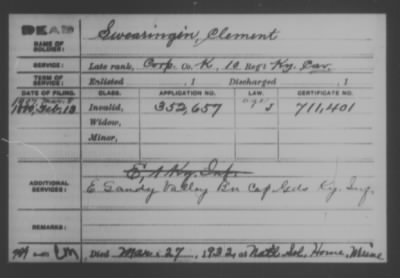 DEAD
NAME OF SOLDIER: Swearingin, Clement
SERVICE: Late rank, Corp. Co. K, 10 Reg't Ky. Cav.
TERM OF SERVICE: Enlisted , 1 Discharged , 1
DATE OF FILING. CLASS. APPLICATION NO. LAW. CERTIFICATE NO.
1880, Feb. 13 Invalid, 352,657 711,401
Widow,
Minor,
ADDITIONAL SERVICES: E, 1 Ky. Inf.
E Sandy Valley Bn Cap Gds Ky. Inf.
REMARKS:
Died Mar. 27, 1922, at Natl Sol, Home, Maine